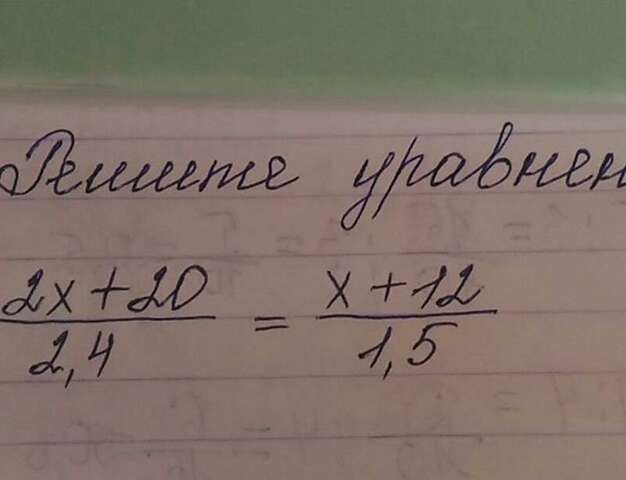 Решите уравнен
2x+20 = x+12
2,4 1,5